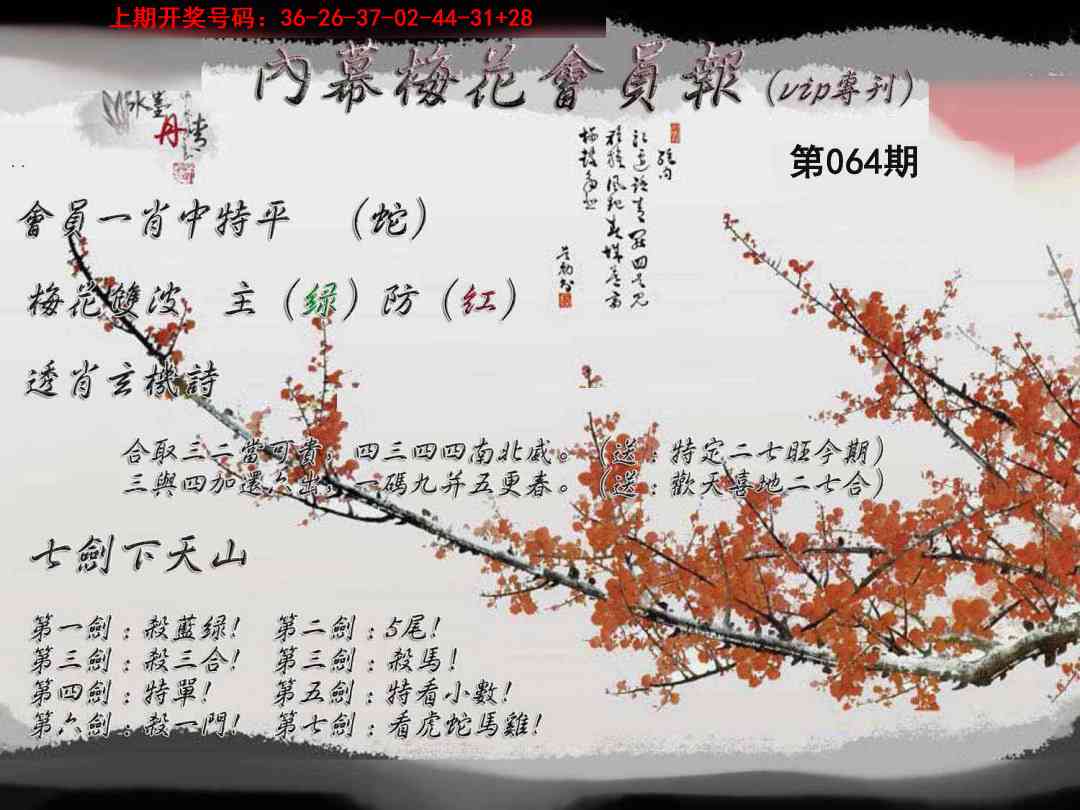 上期开奖号码：36-26-37-02-44-31+28
內幕梅花會員報（vip專刊）
水墨
丹情
第064期
會員一肖中特平 （蛇）
梅花雙波 主（绿）防（红）
透肖玄機詩
合取三二當可貴，四三四四南北咸。（送：特定二七旺今期）
三與四加還六出，一碼九并五更春。（送：歡天喜地二七合）
七劍下天山
第一劍：殺藍绿！ 第二劍：5尾！
第三劍：殺三合！ 第三劍：殺馬！
第四劍：特單！ 第五劍：特看小數！
第六劍：殺一門！ 第七劍：看虎蛇馬雞！